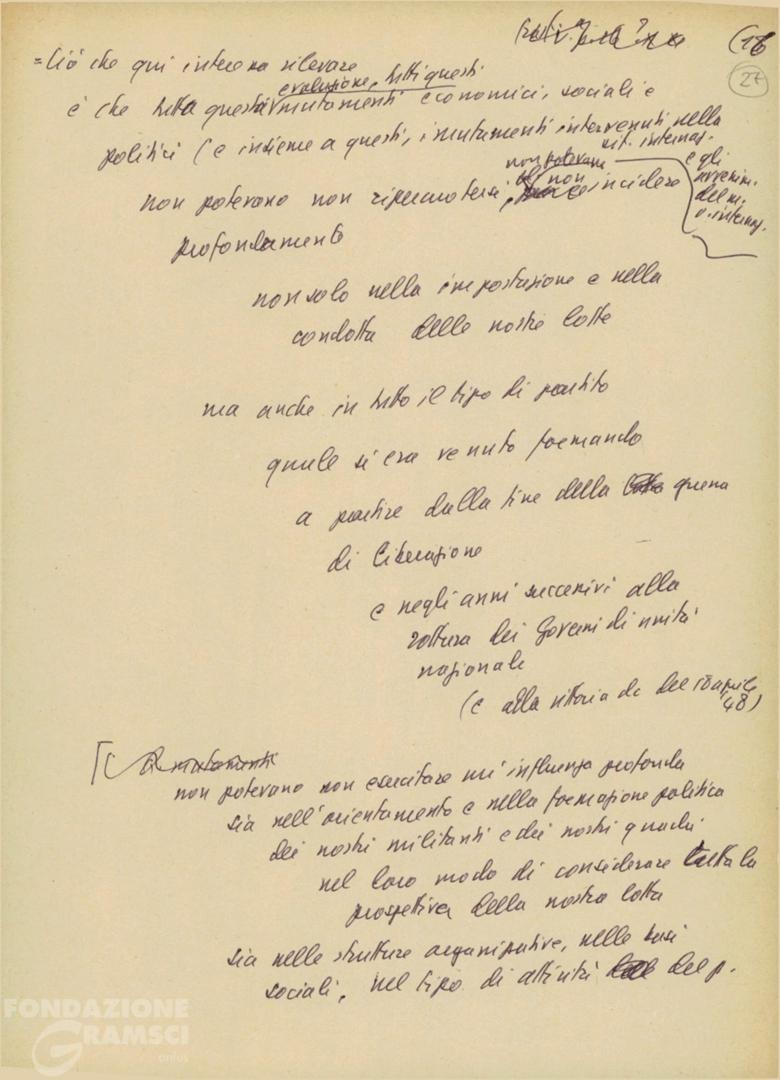 (18
27
=Ciò che qui interessa rilevare
evoluzione, tutti questi
è che tutta questa mutamenti economici, sociali e
politici (e insieme a questi, i mutamenti intervenuti nella
sit. internaz.
e gli
avvenim.
del m.
o. internaz.
non potevano
non
non potevano non ripercuotersi, incidere
profondamente
non solo nella impostazione e nella
condotta delle nostre lotte
ma anche in tutto il tipo di partito
quale si era venuto formando
a partire dalla fine della guerra
di Liberazione
e negli anni successivi alla
rottura dei Governi di unità
nazionale
(e alla vittoria dc del 18 aprile
'48)
mutamenti
non potevano non esercitare un'influenza profonda
sia nell'orientamento e nella formazione politica
dei nostri militanti e dei nostri quadri
nel loro modo di considerare tutta la
prospettiva della nostra lotta
sia nelle strutture organizzative, nelle basi
sociali, nel tipo di attività del p.
FONDAZIONE
GRAMSCI
onlus